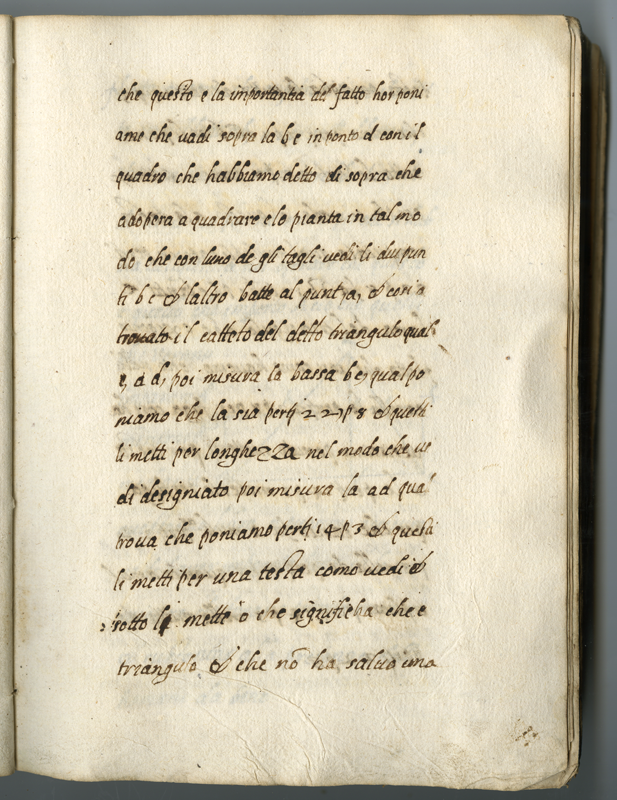 che questo e la importantia del fatto hor poni
ame che vadi sopra la b e in ponto d con il
quadro che habbiamo detto di sopra che
adopera a quadrare e lo pianta in tal mo
do che con luno de gli tagli vedi li dui pun
ti b c & laltro batte al punt, a, & cosi a
trovato il catteto del detto triangulo qual
e, a d, poi misura la bassa b c, qual po
niamo che la sia perti 22 p 8 & questi
li metti per longhezza nel modo che ve
di designiato poi misura la ad qua
trova che poniamo perti 14 p 3 & questi
li metti per una testa como vedi &
sotto li mette o che significha che e
triangulo & che nō ha salvo una